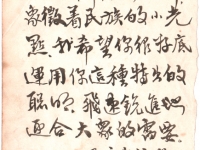 象徵着民族的小光
點,我希望你很好底
運用你這種特出的
聪明,飛速銳進地
迎合大眾的需要。